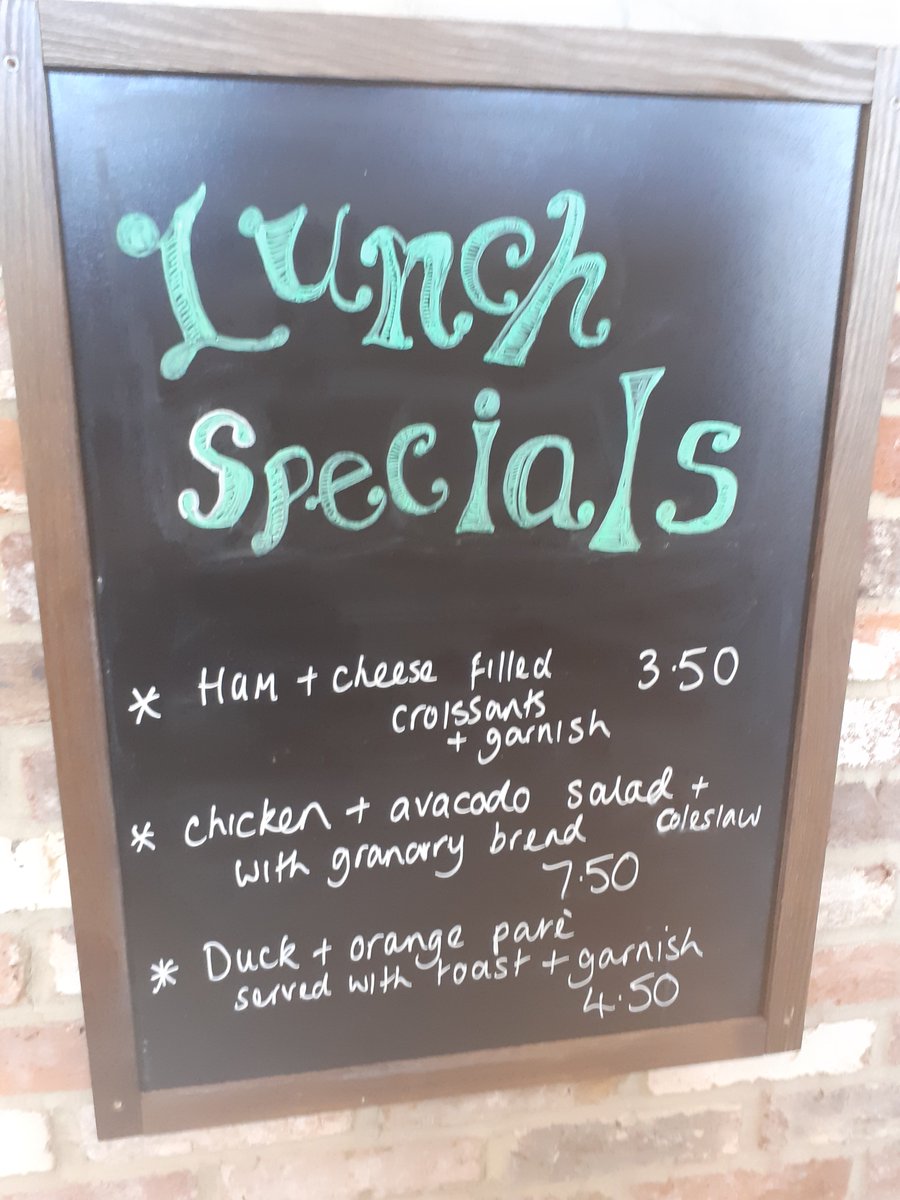 Lunch
Specials
* Ham + cheese filled 3.50
croissants
+ garnish
* chicken + avacado salad +
coleslaw
with granary bread
7.50
* Duck + orange patè
served with toast + garnish
4.50